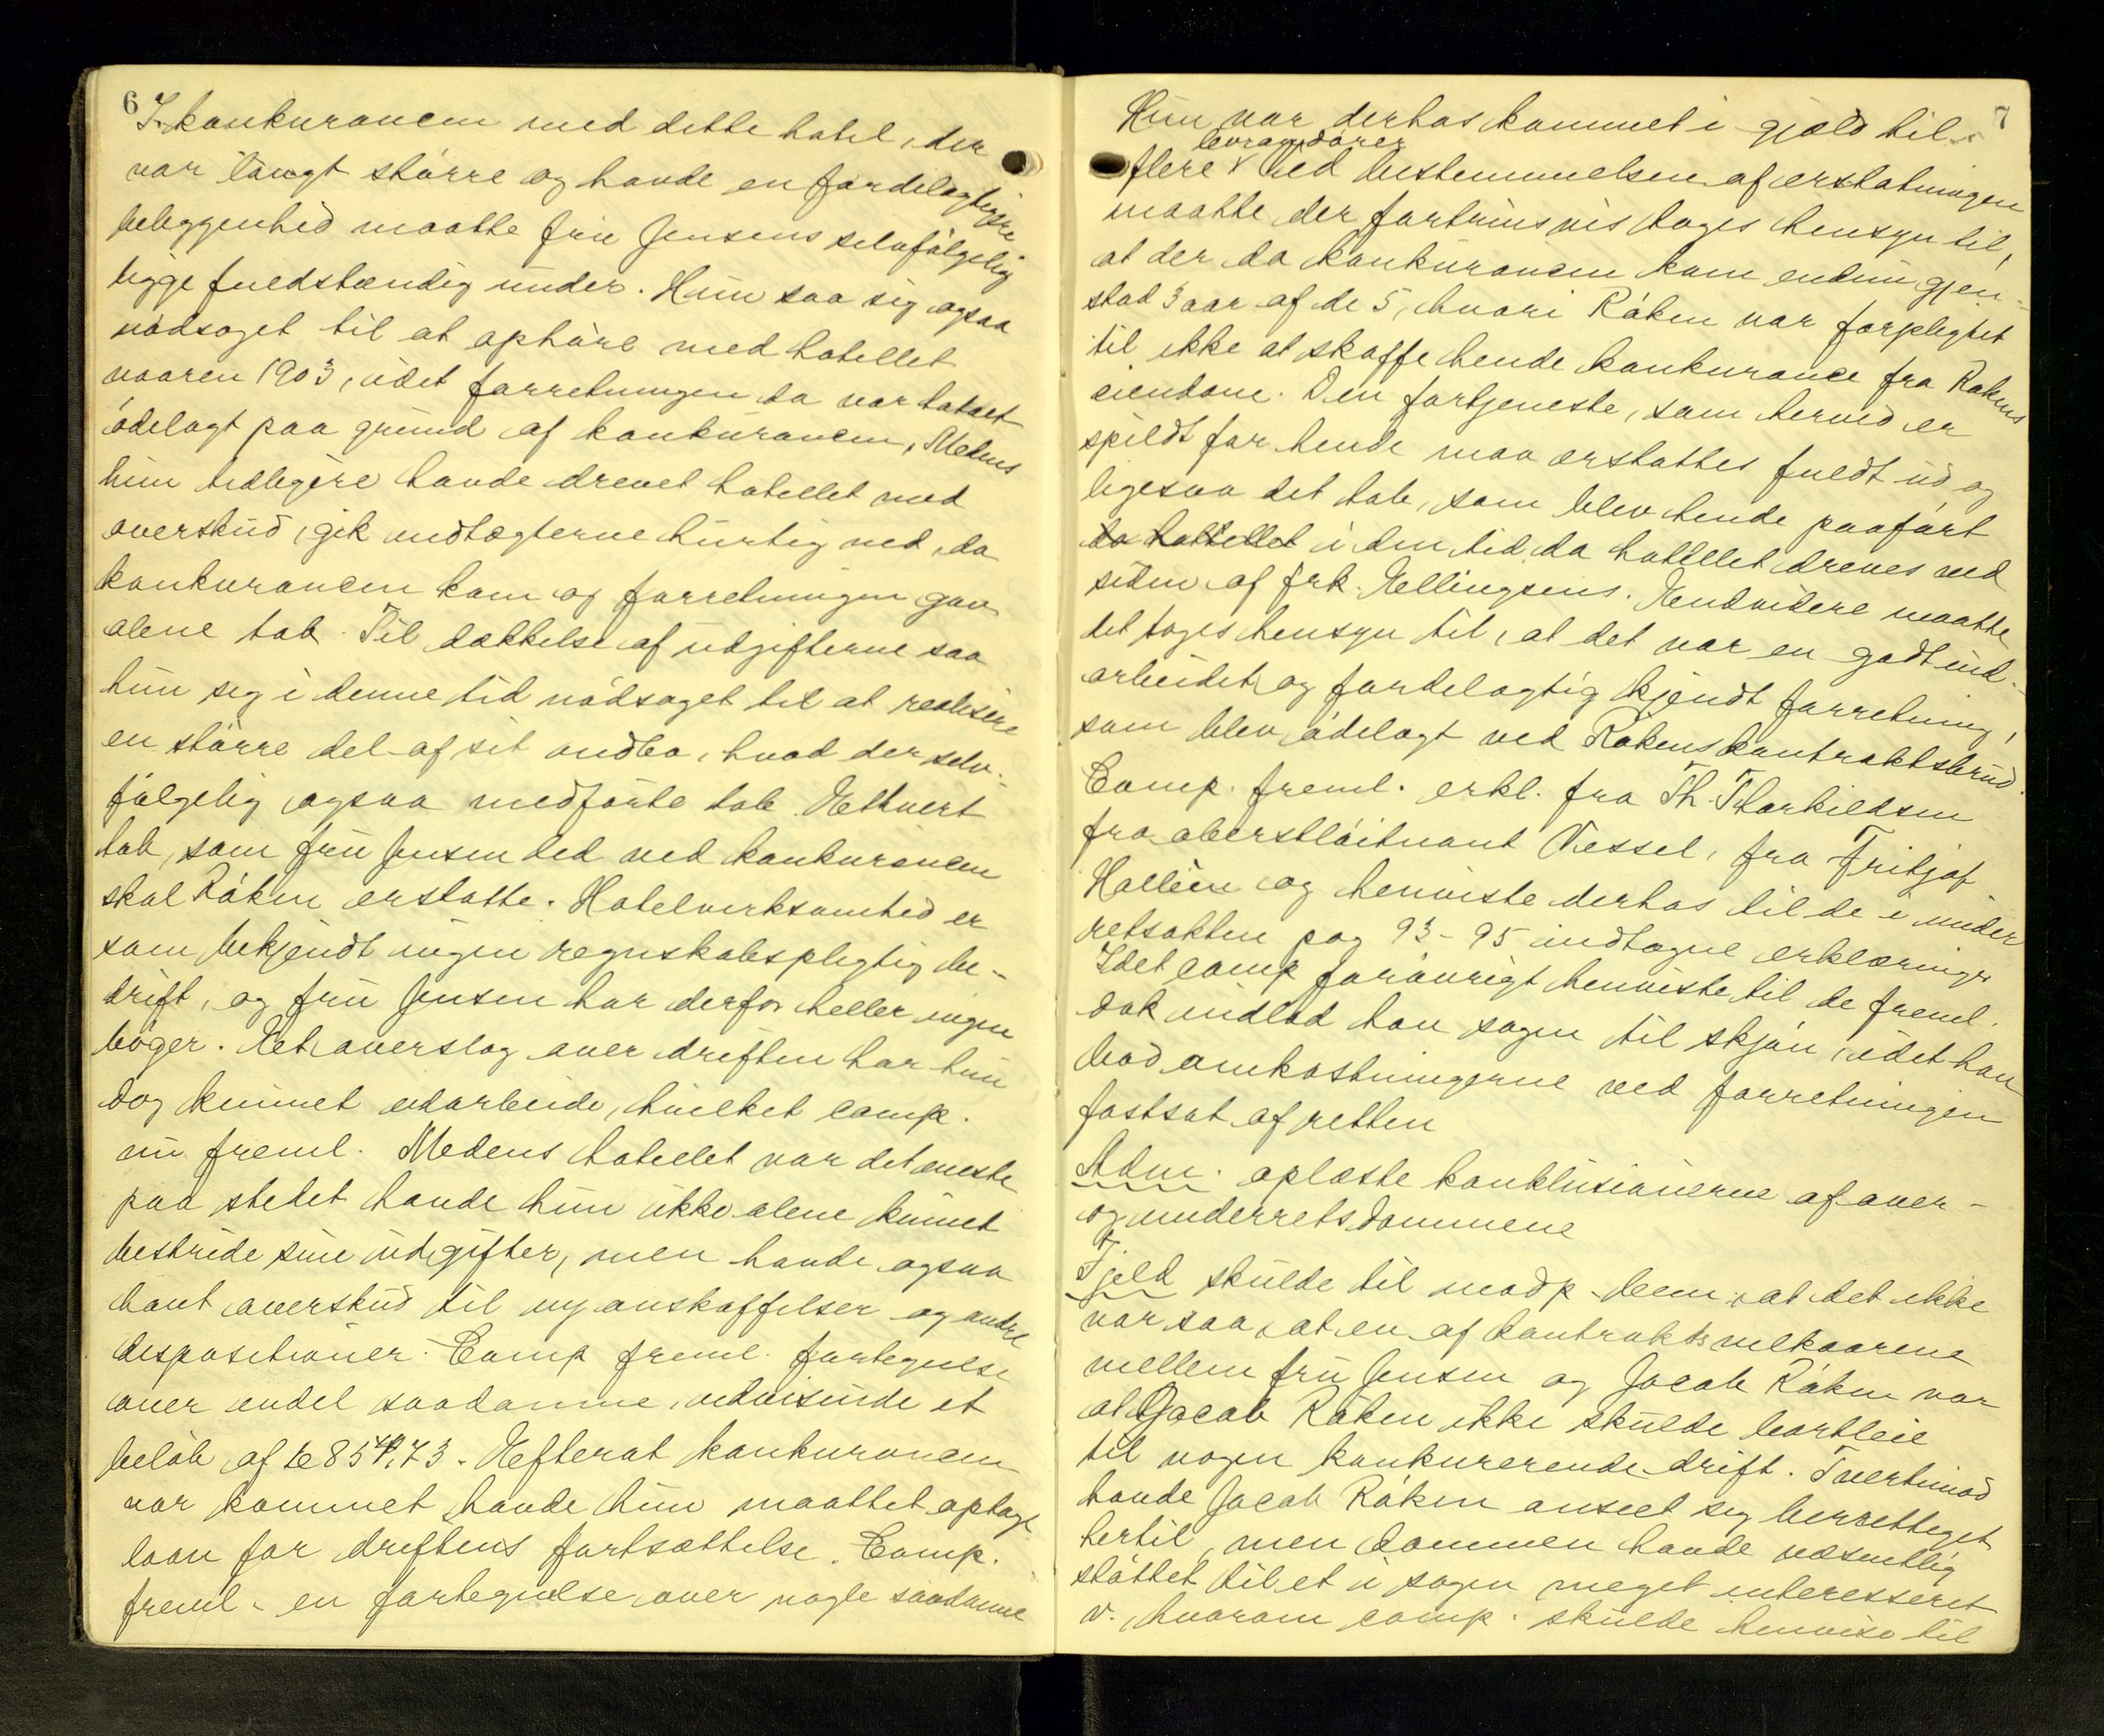 6
I konkurancen med dette hotel, der
var langt större og havde en fordelagtigere
beliggenhed maatte fru Jensens selvfölgelig
ligge fuldstændig under. Hun saa sig ogsaa
nödsaget til at ophöre med hotellet
vaaren 1903, idet forretningen da var totalt
ödelagt paa grund af konkurancen, Medens
hun tidligere havde drevet hotellet med
overskud, gik indtægterne hurtig ned, da
konkurancen kom og forretningen gav
alene tab. Til dækkelse af udgifterne saa
hun sig i denne tid nödsaget til at realisere
en större del af sit indbo, hvad der selv-
fölgelig ogsaa medförte tab. Ethvert
tab, som fru Jensen led ved konkurancen
skal Röken erstatte. Hotelvirksomhed er
som bekjendt ingen regnskabspligtig be-
drift, og fru Jensen har derfor heller ingen
böger. Et overslag over driften har hun
dog kunnet udarbeide, hvilket comp.
nu freml. Medens hotellet var det eneste
paa stedet havde hun ikke alene kunnet
bestride sine udgifter, men havde ogsaa
havt overskud til nyanskaffelser og andre
dispositioner. Comp freml. fortegnelse
over endel saadanne, udvisende et
belöb af kr 854,73. Efterat konkurancen
var kommet havde hun maattet optage
laan for driftens fortsættelse. Comp.
freml. en fortegnelse over nogle saadanne
7
Hun var derhos kommet i gjæld til
leverandörer
flere v Ved bestemmelsen af erstatningen
maatte der fortrinsvis tages hensyn til,
at der da konkurancen kom endnu gjen-
stod 3 aar af de 5, hvori Röken var forpligtet
til ikke at skaffe hende konkurance fra Rökens
eiendom. Den fortjeneste, som herved er
spildt for hende maa erstattes fuldt ud og
ligesaa det tab, som blev hende paafört
da hotellet i den tid da hotellet dreves ved
siden af frk. Ellingsens. Endvidere maatte
det tages hensyn til, at det var en godt ind-
arbeidet og fordelagtig kjendt forretning,
som blev ödelagt ved Rökens kontraktsbrud.
Comp. freml. erkl. fra Th. Thorkildsen
fra oberstlöitnant Vessel, fra Fritjof
Halleen og henviste derhos til de i under
retsakten pag 93-95 indtagne erklæringer
Idet comp forövrigt henviste til de freml.
dok indlod han sagen til skjön, idet han
bad omkostningerne ved forretningen
fastsat af retten
Adm. oplæste konklusionerne af over-
og underretsdommene
Fjeld skulde til modp. bem, at det ikke
var saa, at en af kontraktsvilkaarene
mellem fru Jensen og Jacob Röken var
at Jacob Röken ikke skulde bortleie
til nogen konkurerende drift. Tvertimod
havde Jacob Röken anseet sig berettiget
hertil, men dommen havde væsentlig
støttet til et i sagen meget interesseret
v. hvorom comp. skulde henvise til